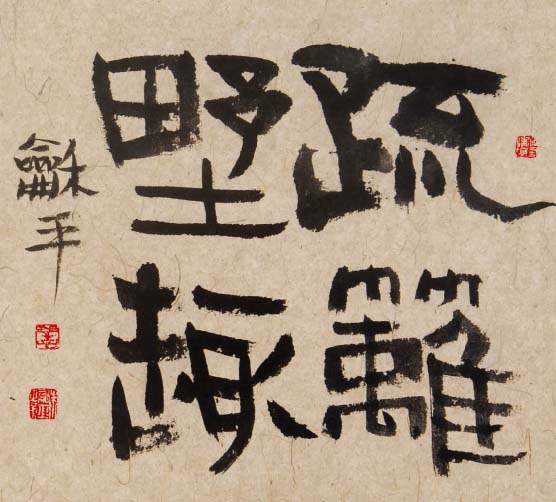 疏籬
野趣
龢平